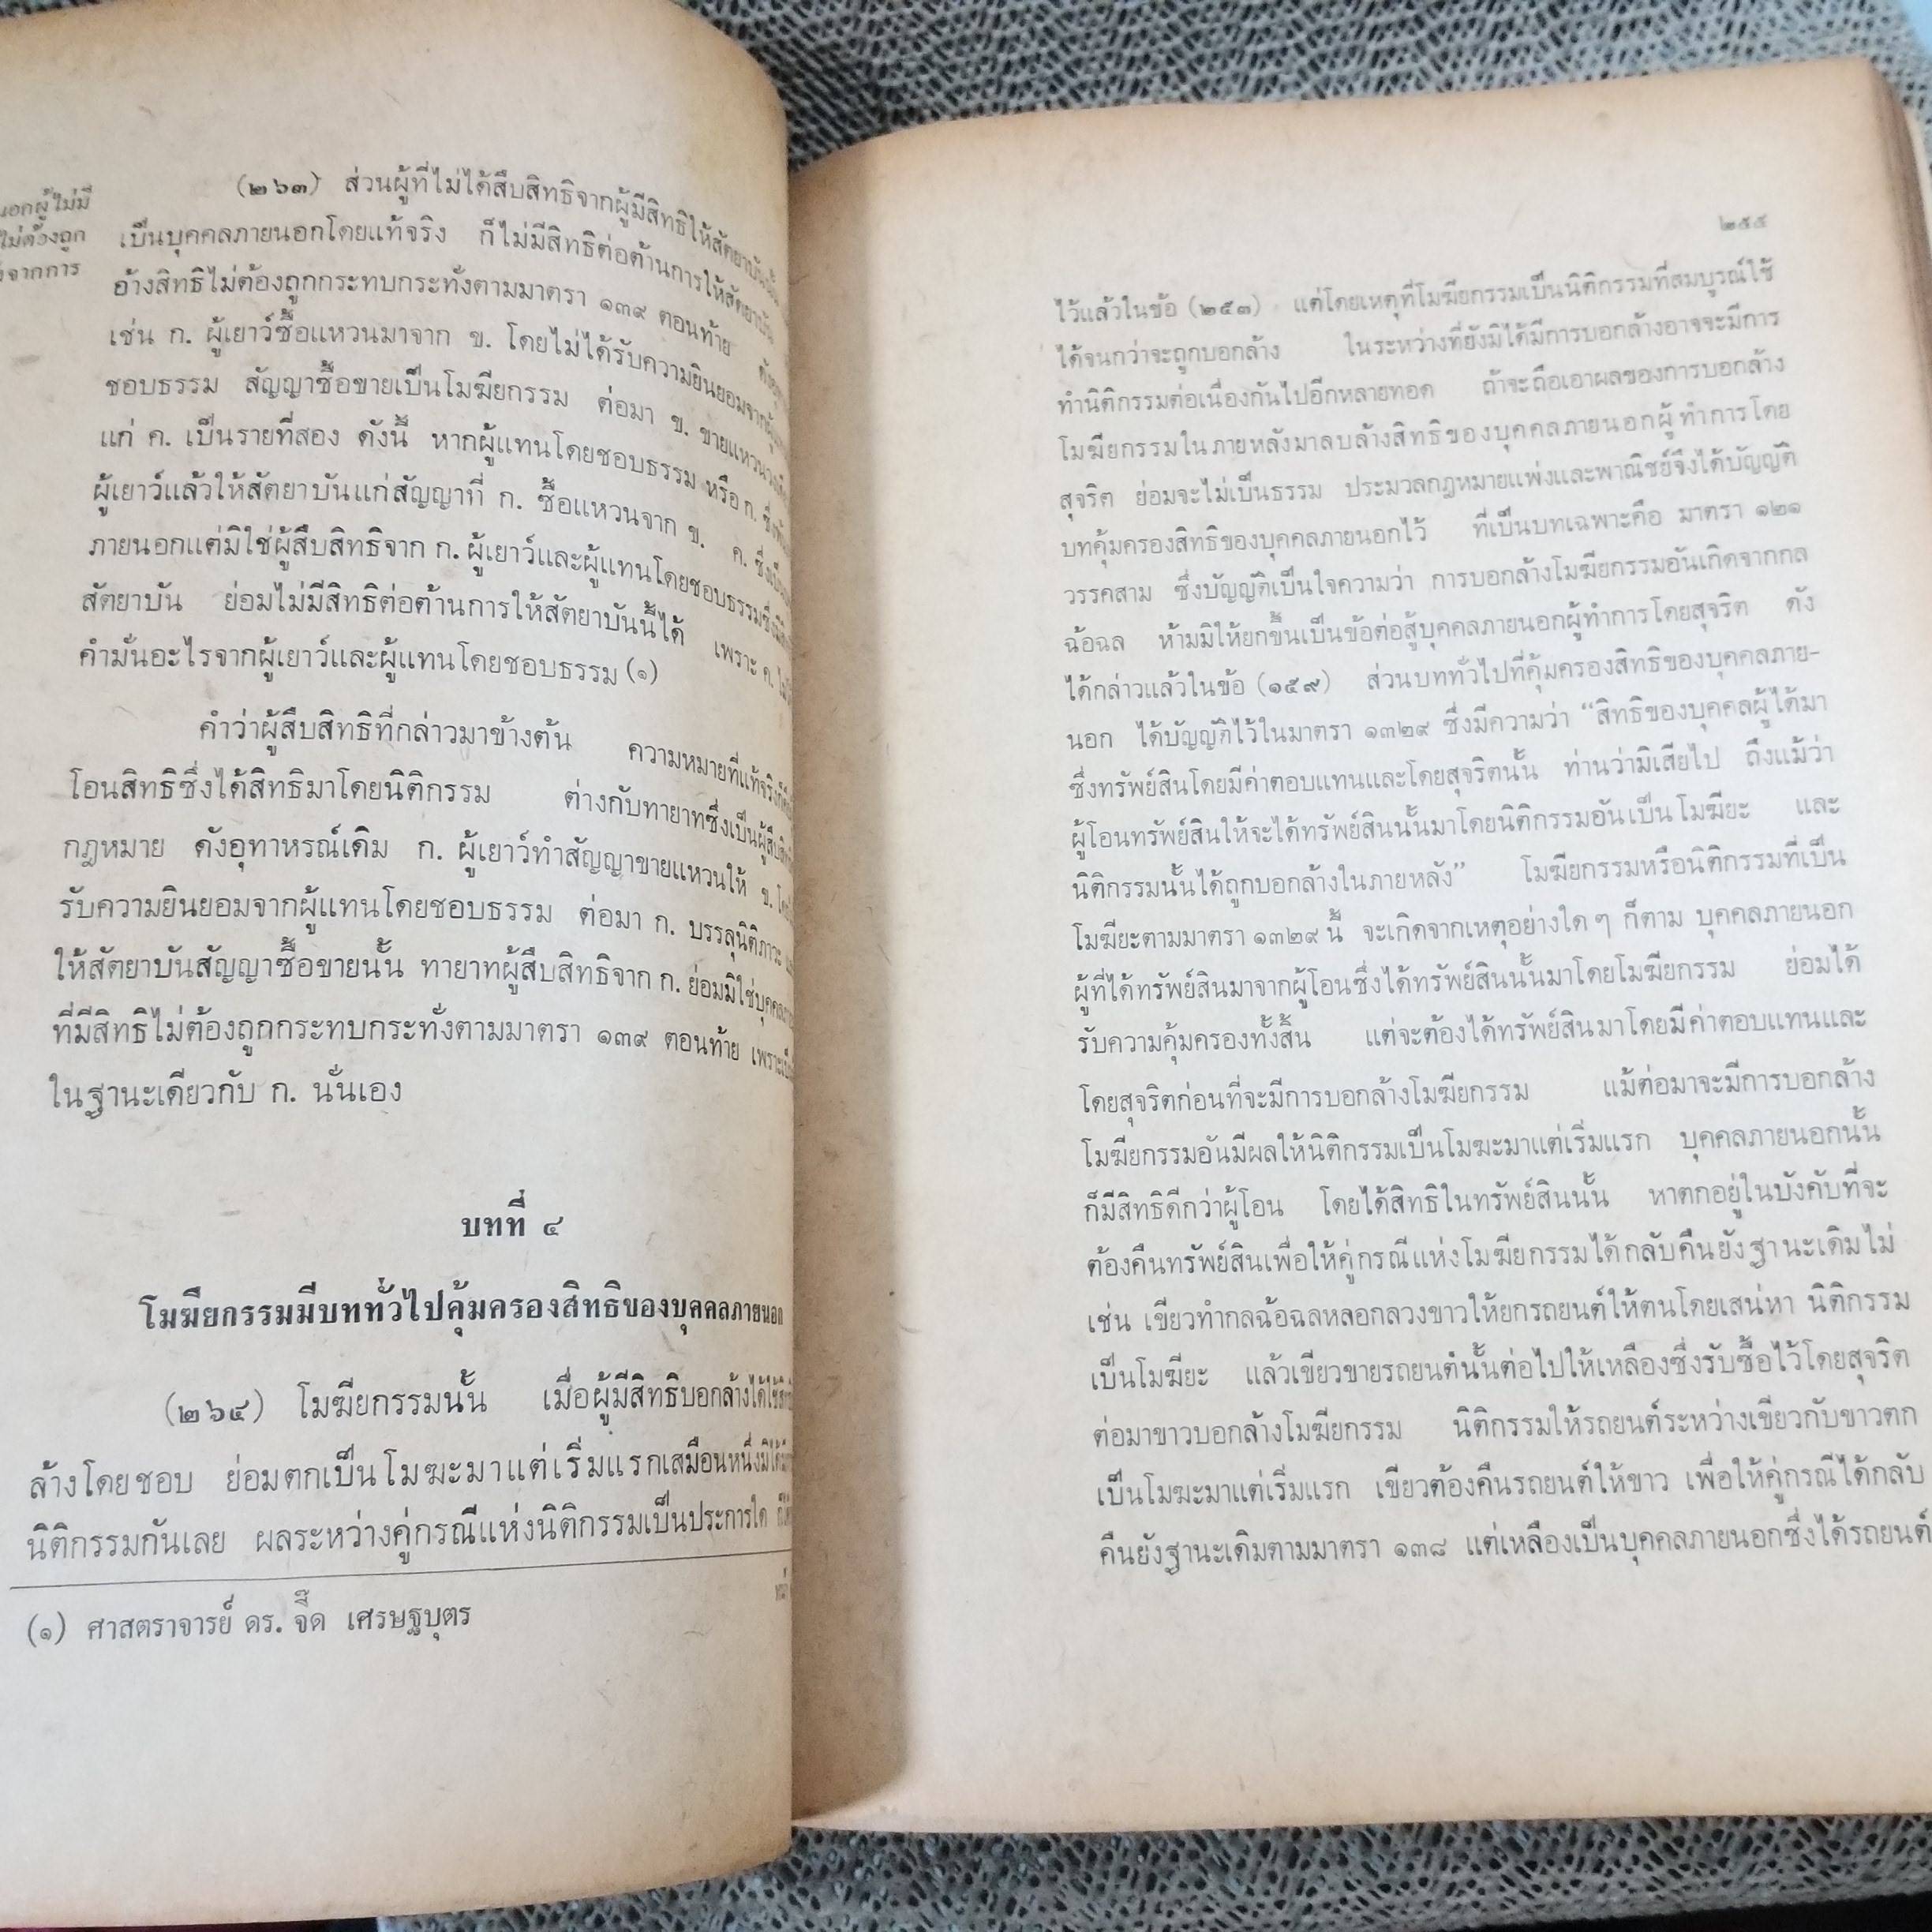 นอกผู้ไม่มี
ไม่ต้องถูก
จากการ
(๒๖๓) ส่วนผู้ที่ไม่ได้สืบสิทธิจากผู้มีสิทธิให้สัตยาบันนั้น
เป็นบุคคลภายนอกโดยแท้จริง ก็ไม่มีสิทธิต่อต้านการให้สัตยาบัน
อ้างสิทธิไม่ต้องถูกกระทบกระทั่งตามมาตรา ๑๓๙ ตอนท้าย
เช่น ก. ผู้เยาว์ซื้อแหวนมาจาก ข. โดยไม่ได้รับความยินยอมจาก
ชอบธรรม สัญญาซื้อขายเป็นโมฆียกรรม ต่อมา ข. ขายแหวน
แก่ ค. เป็นรายที่สอง ดังนี้ หากผู้แทนโดยชอบธรรม หรือ ก. ซึ่ง
ผู้เยาว์แล้วให้สัตยาบันแก่สัญญาที่ ก. ซื้อแหวนจาก ข. ค. ซึ่งเป็น
ภายนอกแต่มิใช่ผู้สืบสิทธิจาก ก. ผู้เยาว์และผู้แทนโดยชอบธรรมซึ่ง
สัตยาบัน ย่อมไม่มีสิทธิต่อต้านการให้สัตยาบันนี้ได้ เพราะ ค.
คำมั่นอะไรจากผู้เยาว์และผู้แทนโดยชอบธรรม (๑)
คำว่าผู้สืบสิทธิที่กล่าวมาข้างต้น ความหมายที่แท้จริง
โอนสิทธิซึ่งได้สิทธิมาโดยนิติกรรม ต่างกับทายาทซึ่งเป็นผู้สืบ
กฎหมาย ดังอุทาหรณ์เดิม ก. ผู้เยาว์ทำสัญญาขายแหวนให้ ข.
รับความยินยอมจากผู้แทนโดยชอบธรรม ต่อมา ก. บรรลุนิติภาวะ
ให้สัตยาบันสัญญาซื้อขายนั้น ทายาทผู้สืบสิทธิจาก ก. ย่อมมิใช่
ที่มีสิทธิไม่ต้องถูกกระทบกระทั่งตามมาตรา ๑๓๙ ตอนท้าย เพราะ
ในฐานะเดียวกับ ก. นั่นเอง
บทที่ ๔
โมฆียกรรมมีบททั่วไปคุ้มครองสิทธิของบุคคลภายนอก
(๒๖๔) โมฆียกรรมนั้น เมื่อผู้มีสิทธิบอกล้างได้ใช้
ล้างโดยชอบ ย่อมตกเป็นโมฆะมาแต่เริ่มแรกเสมือนหนึ่งมิได้
นิติกรรมกันเลย ผลระหว่างคู่กรณีแห่งนิติกรรมเป็นประการใด
(๑) ศาสตราจารย์ ดร. จี๊ด เศรษฐบุตร
๒๕๕
ไว้แล้วในข้อ (๒๕๓) แต่โดยเหตุที่โมฆียกรรมเป็นนิติกรรมที่สมบูรณ์ใช้
ได้จนกว่าจะถูกบอกล้าง ในระหว่างที่ยังมิได้มีการบอกล้างอาจจะมีการ
ทำนิติกรรมต่อเนื่องกันไปอีกหลายทอด ถ้าจะถือเอาผลของการบอกล้าง
โมฆียกรรมในภายหลังมาลบล้างสิทธิของบุคคลภายนอกผู้ทำการโดย
สุจริต ย่อมจะไม่เป็นธรรม ประมวลกฎหมายแพ่งและพาณิชย์จึงได้บัญญัติ
บทคุ้มครองสิทธิของบุคคลภายนอกไว้ ที่เป็นบทเฉพาะคือ มาตรา ๑๒๑
วรรคสาม ซึ่งบัญญัติเป็นใจความว่า การบอกล้างโมฆียกรรมอันเกิดจากกล
ฉ้อฉล ห้ามมิให้ยกขึ้นเป็นข้อต่อสู้บุคคลภายนอกผู้ทำการโดยสุจริต ดัง
ได้กล่าวแล้วในข้อ (๑๕๙) ส่วนบททั่วไปที่คุ้มครองสิทธิของบุคคลภาย-
นอก ได้บัญญัติไว้ในมาตรา ๑๓๒๙ ซึ่งมีความว่า “สิทธิของบุคคลผู้ได้มา
ซึ่งทรัพย์สินโดยมีค่าตอบแทนและโดยสุจริตนั้น ท่านว่ามิเสียไป ถึงแม้ว่า
ผู้โอนทรัพย์สินให้จะได้ทรัพย์สินนั้นมาโดยนิติกรรมอันเป็นโมฆียะ และ
นิติกรรมนั้นได้ถูกบอกล้างในภายหลัง” โมฆียกรรมหรือนิติกรรมที่เป็น
โมฆียะตามมาตรา ๑๓๒๙ นี้ จะเกิดจากเหตุอย่างใด ๆ ก็ตาม บุคคลภายนอก
ผู้ที่ได้ทรัพย์สินมาจากผู้โอนซึ่งได้ทรัพย์สินนั้นมาโดยโมฆียกรรม ย่อมได้
รับความคุ้มครองทั้งสิ้น แต่จะต้องได้ทรัพย์สินมาโดยมีค่าตอบแทนและ
โดยสุจริตก่อนที่จะมีการบอกล้างโมฆียกรรม แม้ต่อมาจะมีการบอกล้าง
โมฆียกรรมอันมีผลให้นิติกรรมเป็นโมฆะมาแต่เริ่มแรก บุคคลภายนอกนั้น
ก็มีสิทธิดีกว่าผู้โอน โดยได้สิทธิในทรัพย์สินนั้น หาตกอยู่ในบังคับที่จะ
ต้องคืนทรัพย์สินเพื่อให้คู่กรณีแห่งโมฆียกรรมได้กลับคืนยังฐานะเดิมไม่
เช่น เขียวทำกลฉ้อฉลหลอกลวงขาวให้ยกรถยนต์ให้ตนโดยเสน่หา นิติกรรม
เป็นโมฆียะ แล้วเขียวขายรถยนต์นั้นต่อไปให้เหลืองซึ่งรับซื้อไว้โดยสุจริต
ต่อมาขาวบอกล้างโมฆียกรรม นิติกรรมให้รถยนต์ระหว่างเขียวกับขาวตก
เป็นโมฆะมาแต่เริ่มแรก เขียวต้องคืนรถยนต์ให้ขาว เพื่อให้คู่กรณีได้กลับ
คืนยังฐานะเดิมตามมาตรา ๑๓๘ แต่เหลืองเป็นบุคคลภายนอกซึ่งได้รถยนต์